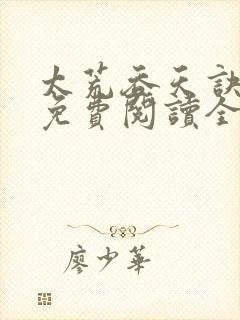 太荒吞天訣
免費閱讀全
廖少華